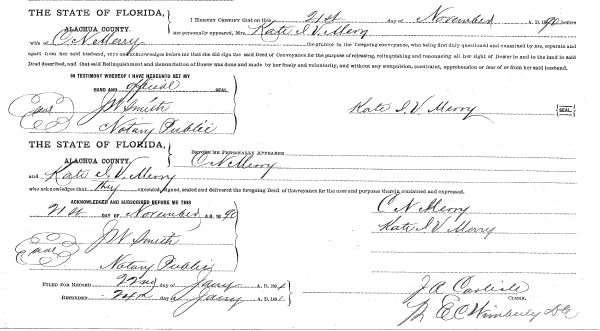 THE STATE OF FLORIDA,
ALACHUA COUNTY.
I HEREBY CERTIFY that on this 21st day of November A. D. 1890, before
me personally appeared, Mrs. Kate I. V. Merry
wife of C N Merry the grantor in the foregoing conveyance, who being first duly questioned and examined by me, separate and
apart from her said husband, says and acknowledges before me that she did sign the said Deed of Conveyance for the purpose of releasing, relinquishing and renouncing all her right of Dower in and to the land in said
Deed described, and that said Relinquishment and Renunciation of Dower was done and made by her freely and voluntarily, and without any compulsion, constraint, apprehension or fear of or from her said husband.
IN TESTIMONY WHEREOF I HAVE HEREUNTO SET MY
HAND AND official SEAL
seal J W Smith Kate I. V. Merry SEAL
Notary Public
THE STATE OF FLORIDA,
ALACHUA COUNTY.
BEFORE ME PERSONALLY APPEARED C N Merry
and Kate I. V. Merry
who acknowledges that they executed, signed, sealed and delivered the foregoing Deed of Conveyance for the uses and purposes therein contained and expressed.
ACKNOWLEDGED AND SUBSCRIBED BEFORE ME THIS
21st DAY OF November A. D. 1890
C N Merry
Kate I. V. Merry
seal J W Smith
Notary Public
FILED FOR RECORD 22nd day of Jany A. D. 189
RECORDED 24th day of Jany A. D. 189
J A Carlisle
CLERK.
E C Wimberly DC